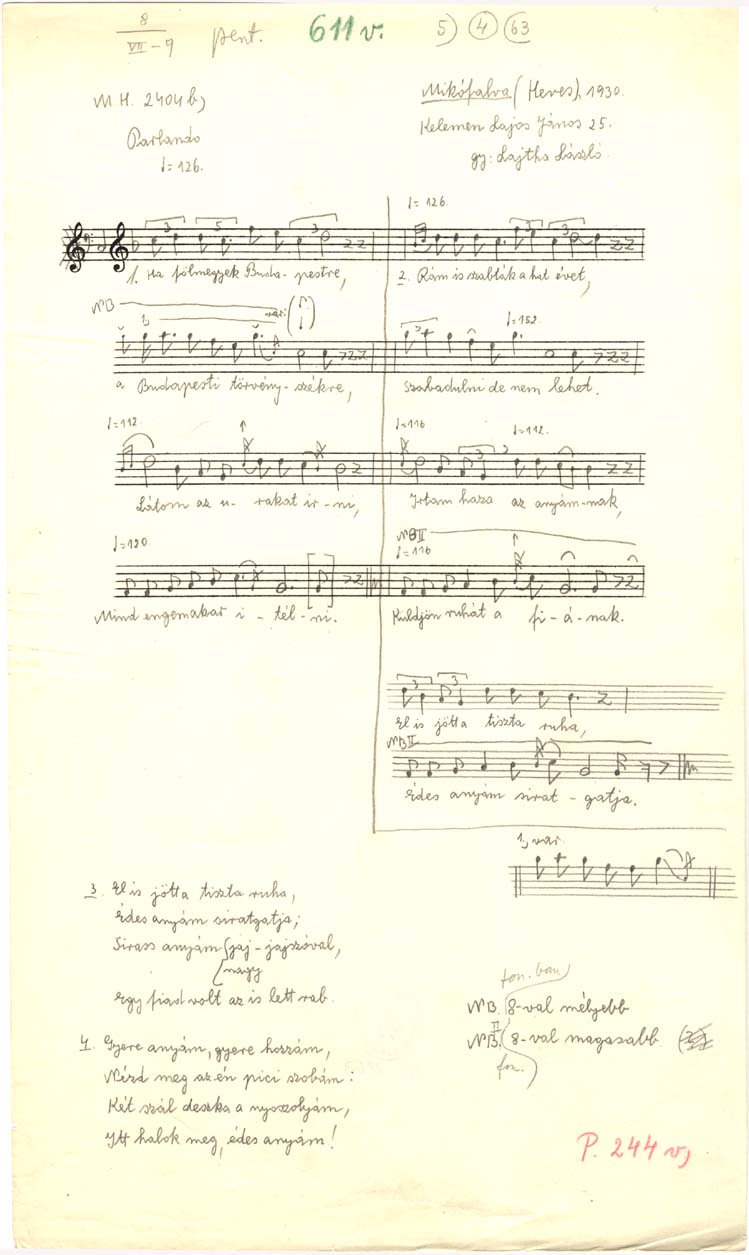 8
VII-9
pent.
611 v.
5) 4 63
M H. 2404 b,
Mikófalva (Heves), 1930.
Parlando
Kelemen Lajos János 25.
♩= 126.
gy: Lajtha László
♩= 126.
3 5 3 3 3
1. Ha fölmegyek Buda- pestre,
2. Rám is szabták a hat évet,
NB
1,
var.
♩=152.
a Budapesti törvény- székre,
Szabadulni de nem lehet.
♩=112.
♩=116
♩=112.
Látom az u- rakat ir- ni,
Irtam haza az anyám-nak,
♩=120
NB II
♩=116
Mind engemakar i- tél- ni.
Küldjön ruhát a fi- á- nak.
3 3
El is jötta tiszta ruha,
NB II
Édes anyám sirat- gatja.
1, var.
3. El is jötta tiszta ruha,
Édes anyám siratgatja;
Sirass anyám (jaj- jajszóval,
(nagy
Egy fiad volt az is lett rab.
fon. ban
NB. 8-val mélyebb
II
NB. 8-val magasabb
fon.
4. Gyere anyám, gyere hozzám,
Nézd meg az én pici szobám:
Két szál deszka a nyoszolyám,
Itt halok meg, édes anyám!
P. 244 v,